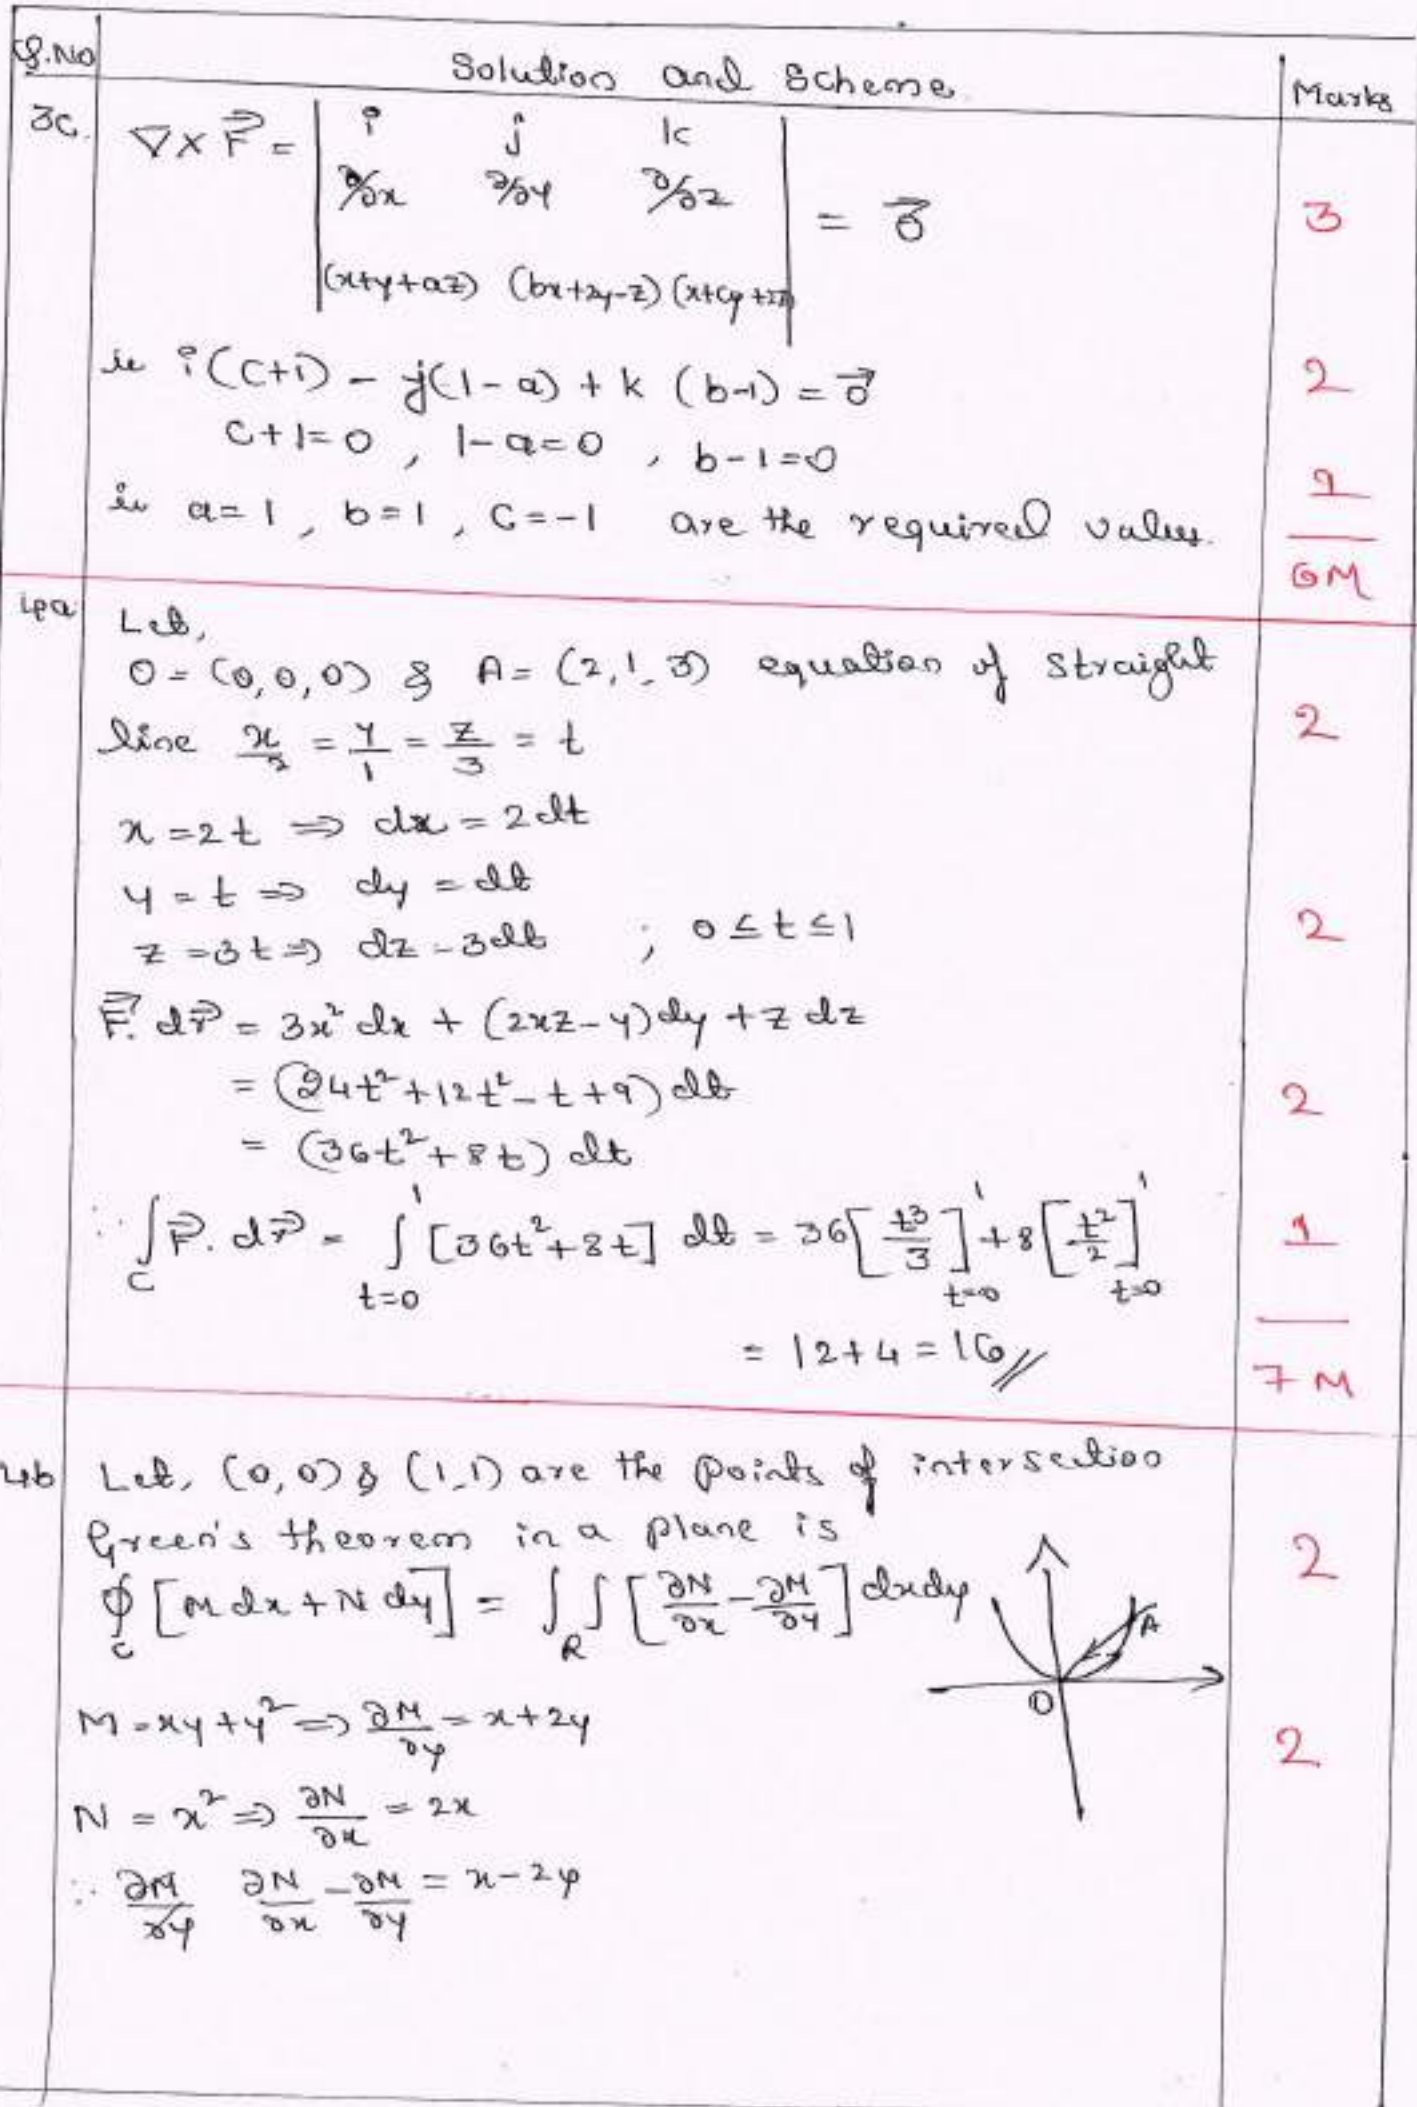 Q.No Solution and Scheme Marks
3c. ∇×F⃗ = | i j k |
| ∂/∂x ∂/∂y ∂/∂z | = 0⃗ 3
| (x+y+az) (bx+2y-z) (x+cy+2z) |
ie i(c+1) - j(1-a) + k (b-1) = 0⃗ 2
c+1=0 , 1-a=0 , b-1=0
ie a=1 , b=1 , c=-1 are the required values. 1
6M
4a Let,
O = (0,0,0) & A = (2,1,3) equation of straight
line x/2 = y/1 = z/3 = t 2
x = 2t ⇒ dx = 2dt
y = t ⇒ dy = dt
z = 3t ⇒ dz = 3dt ; 0 ≤ t ≤ 1 2
F⃗. dr⃗ = 3x² dx + (2xz-y)dy + z dz
= (24t² + 12t² - t + 9) dt 2
= (36t² + 8t) dt
∴ ∫_C F⃗. dr⃗ = ∫_{t=0}^{1} [36t² + 8t] dt = 36[t³/3]_{t=0}^{1} + 8[t²/2]_{t=0}^{1} 1
= 12+4 = 16//
7M
4b Let, (0,0) & (1,1) are the points of intersection
Green's theorem in a plane is 2
∮_c [M dx + N dy] = ∫∫_R [∂N/∂x - ∂M/∂y] dxdy
A
O
M = xy + y² ⇒ ∂M/∂y = x+2y 2
N = x² ⇒ ∂N/∂x = 2x
∴ ∂M/∂y ∂N/∂x - ∂M/∂y = x-2y